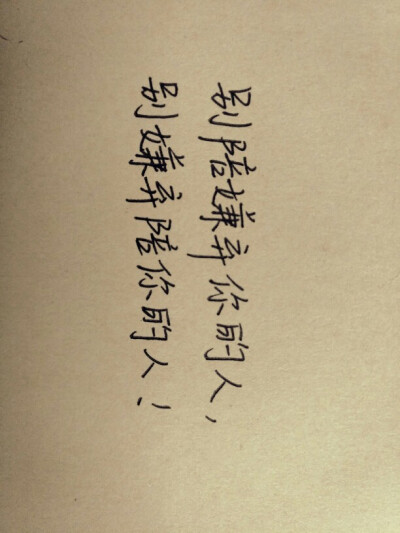 别陪嫌弃你的人，
别嫌弃陪你的人！